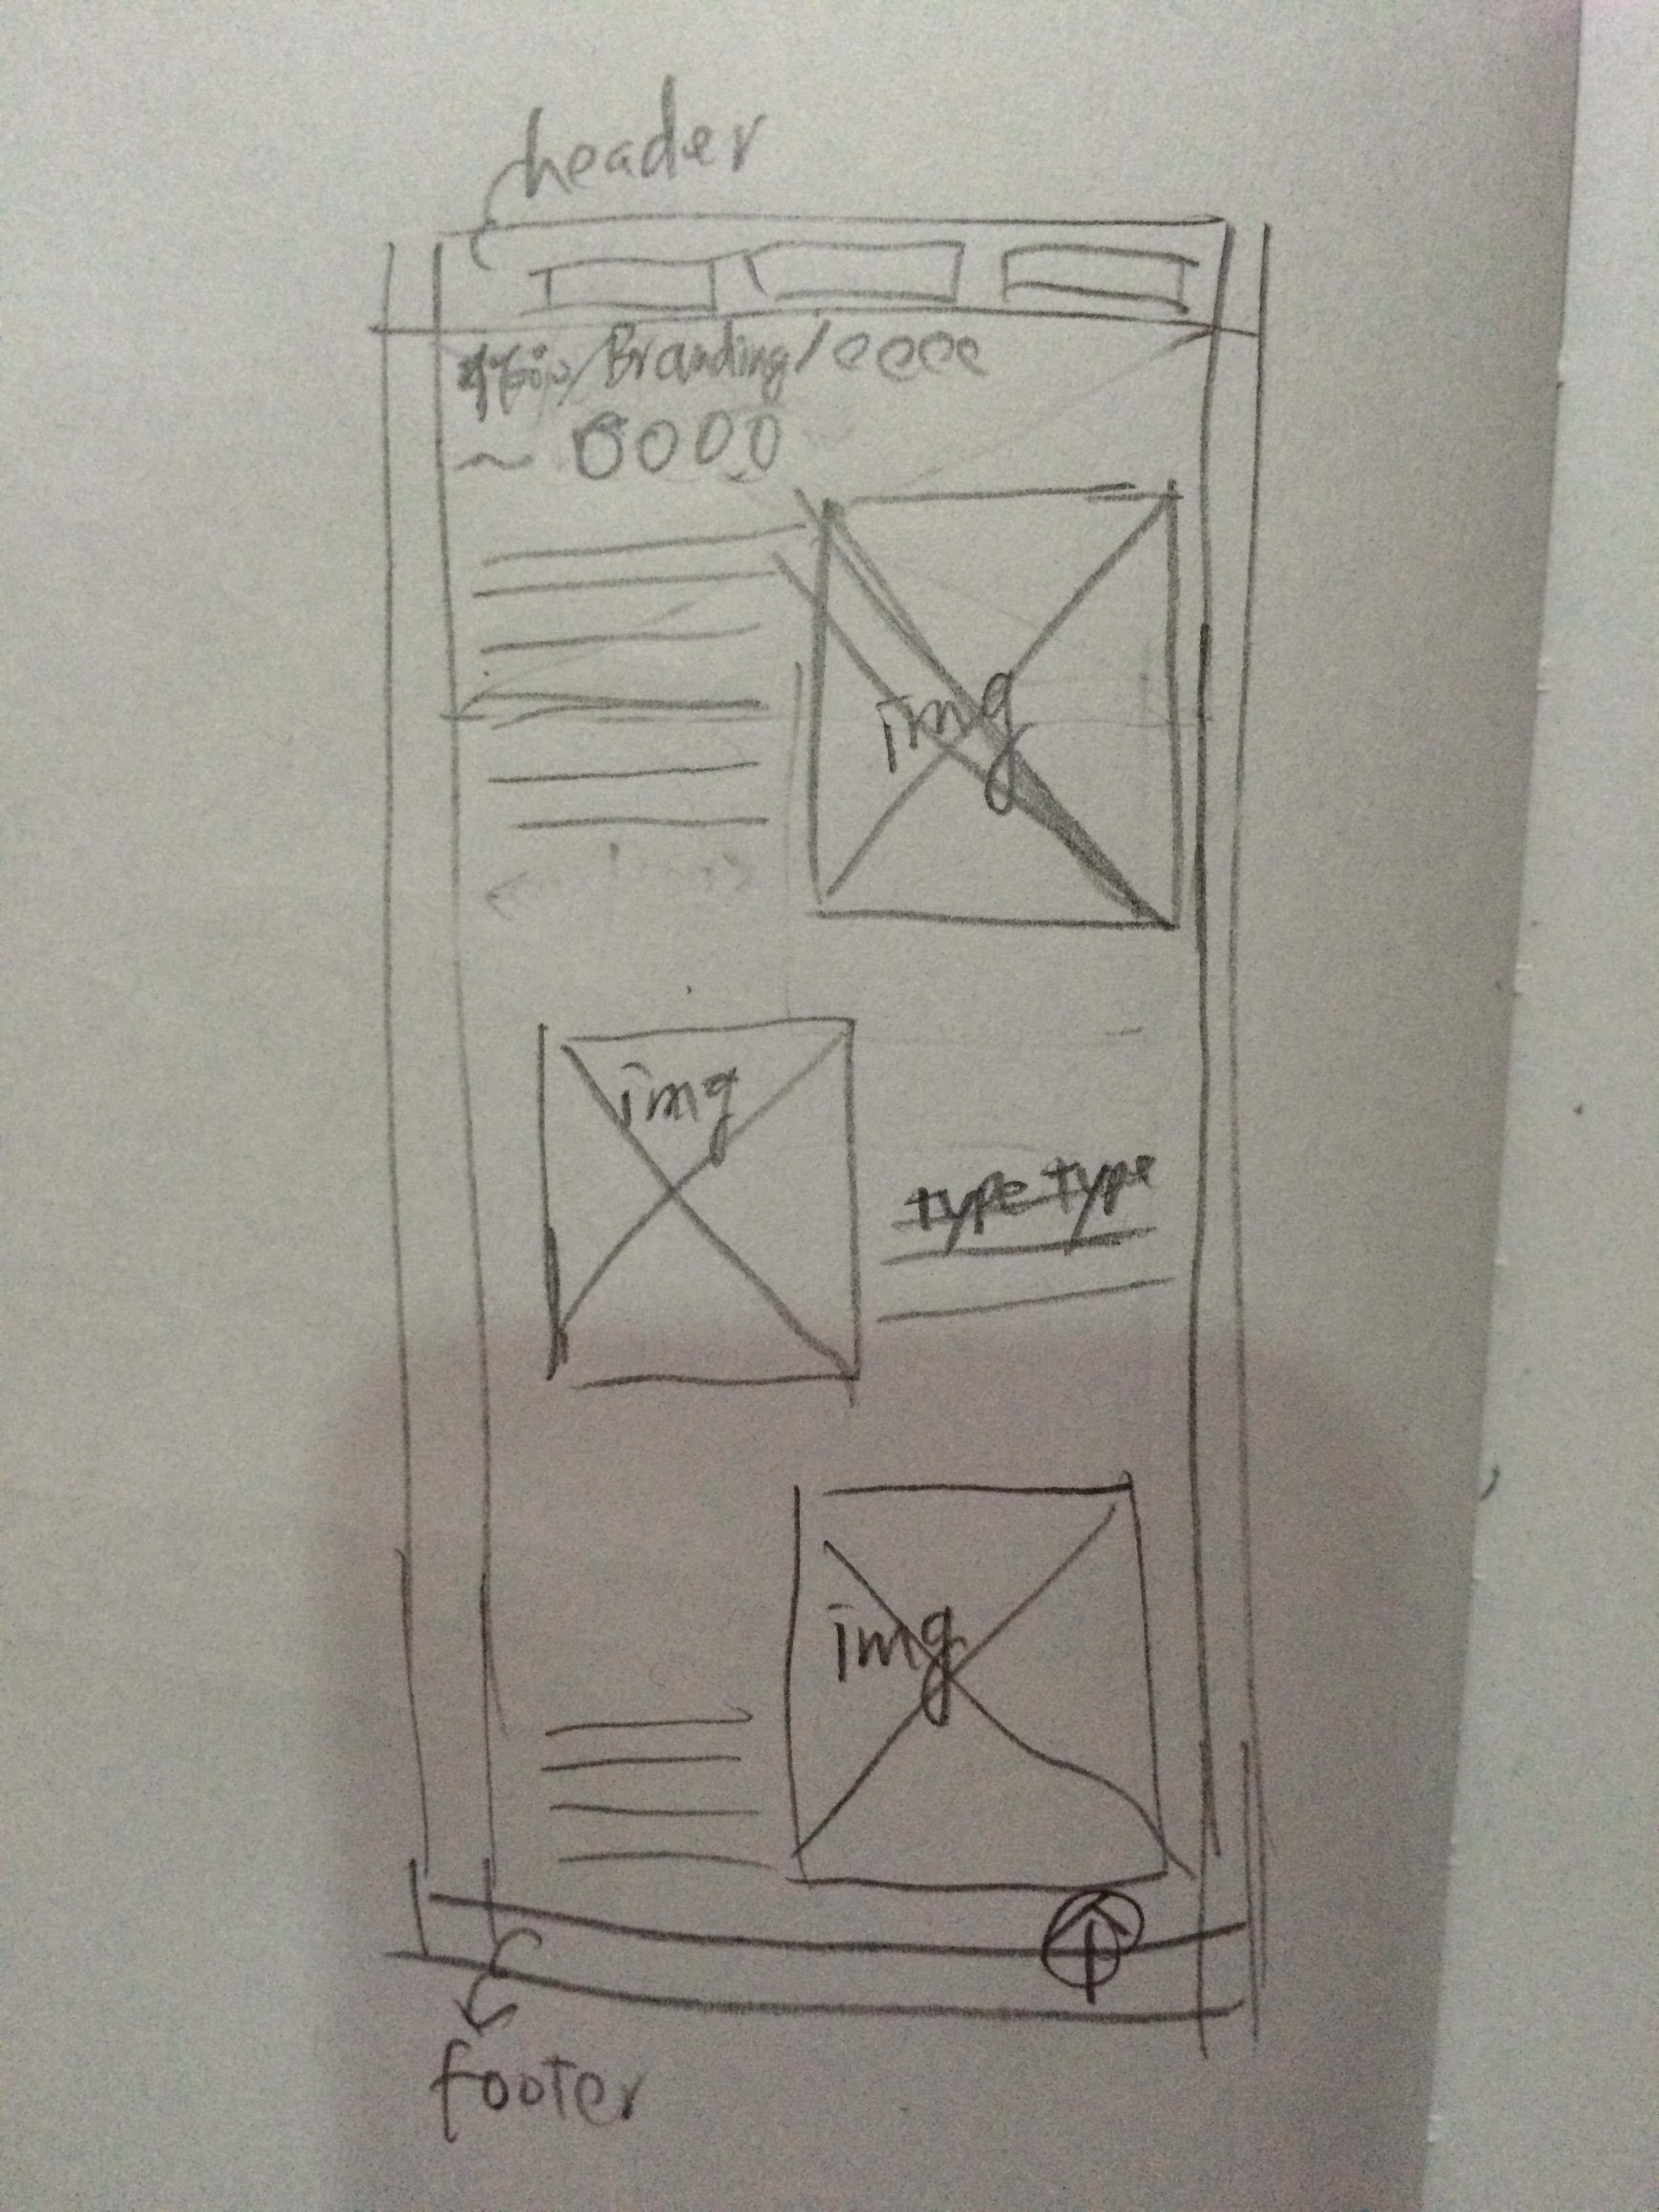 header
/Branding/
img
img
type type
img
footer